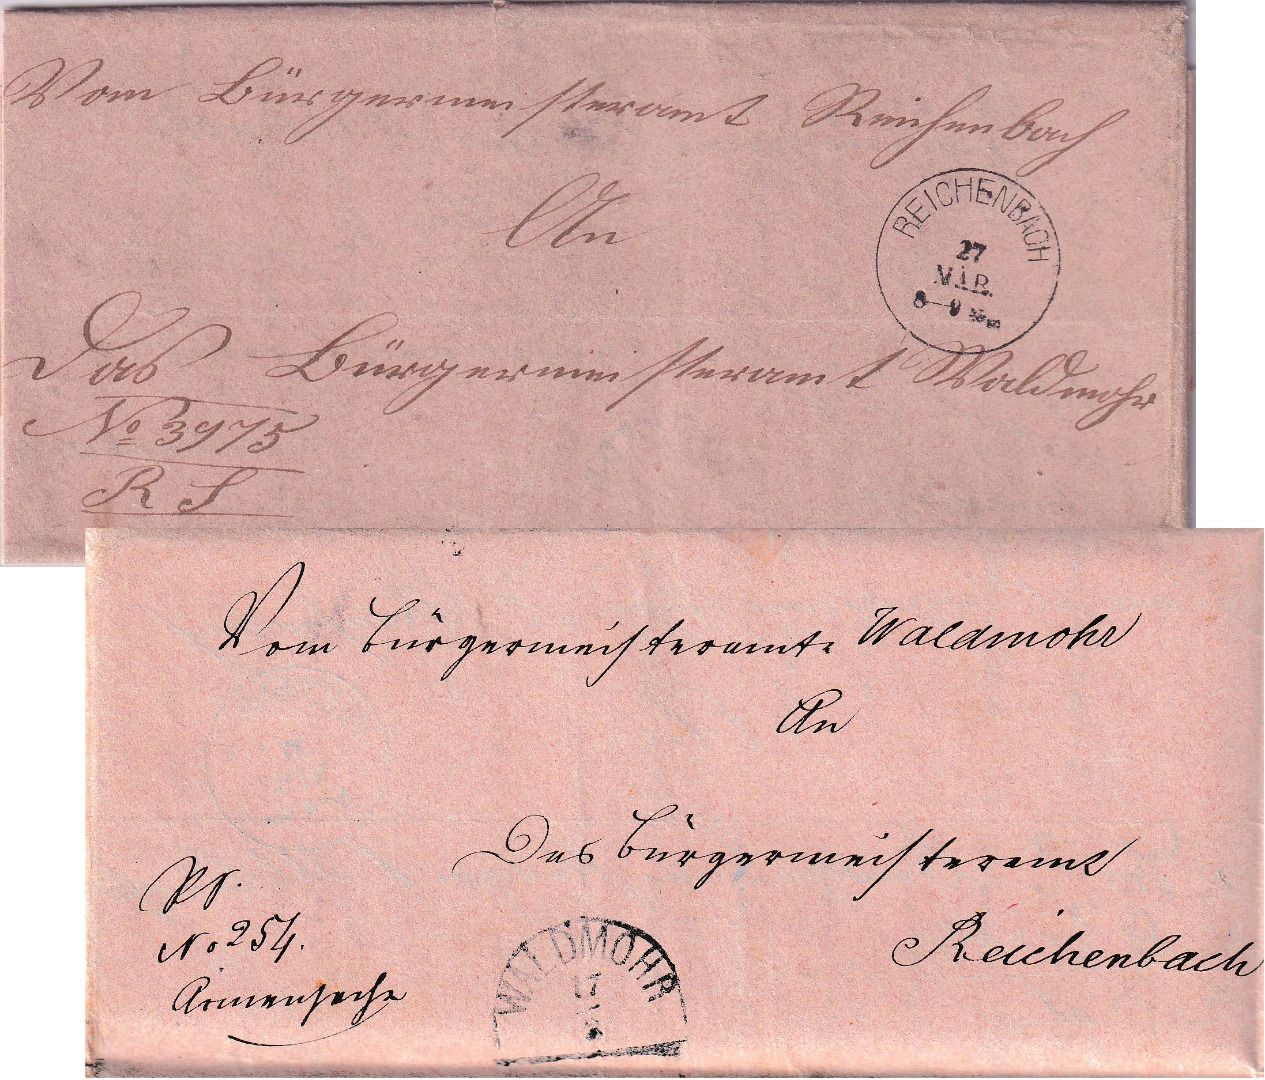 Vom Bürgermeisteramt Reichenbach
An
REICHENBACH
27
MÄR.
8-9
Das Bürgermeisteramt Waldmohr
No 3975
R S
Vom Bürgermeisteramte Waldmohr
An
Das Bürgermeisteramt
Reichenbach
No 254.
Armensache
WALDMOHR
17